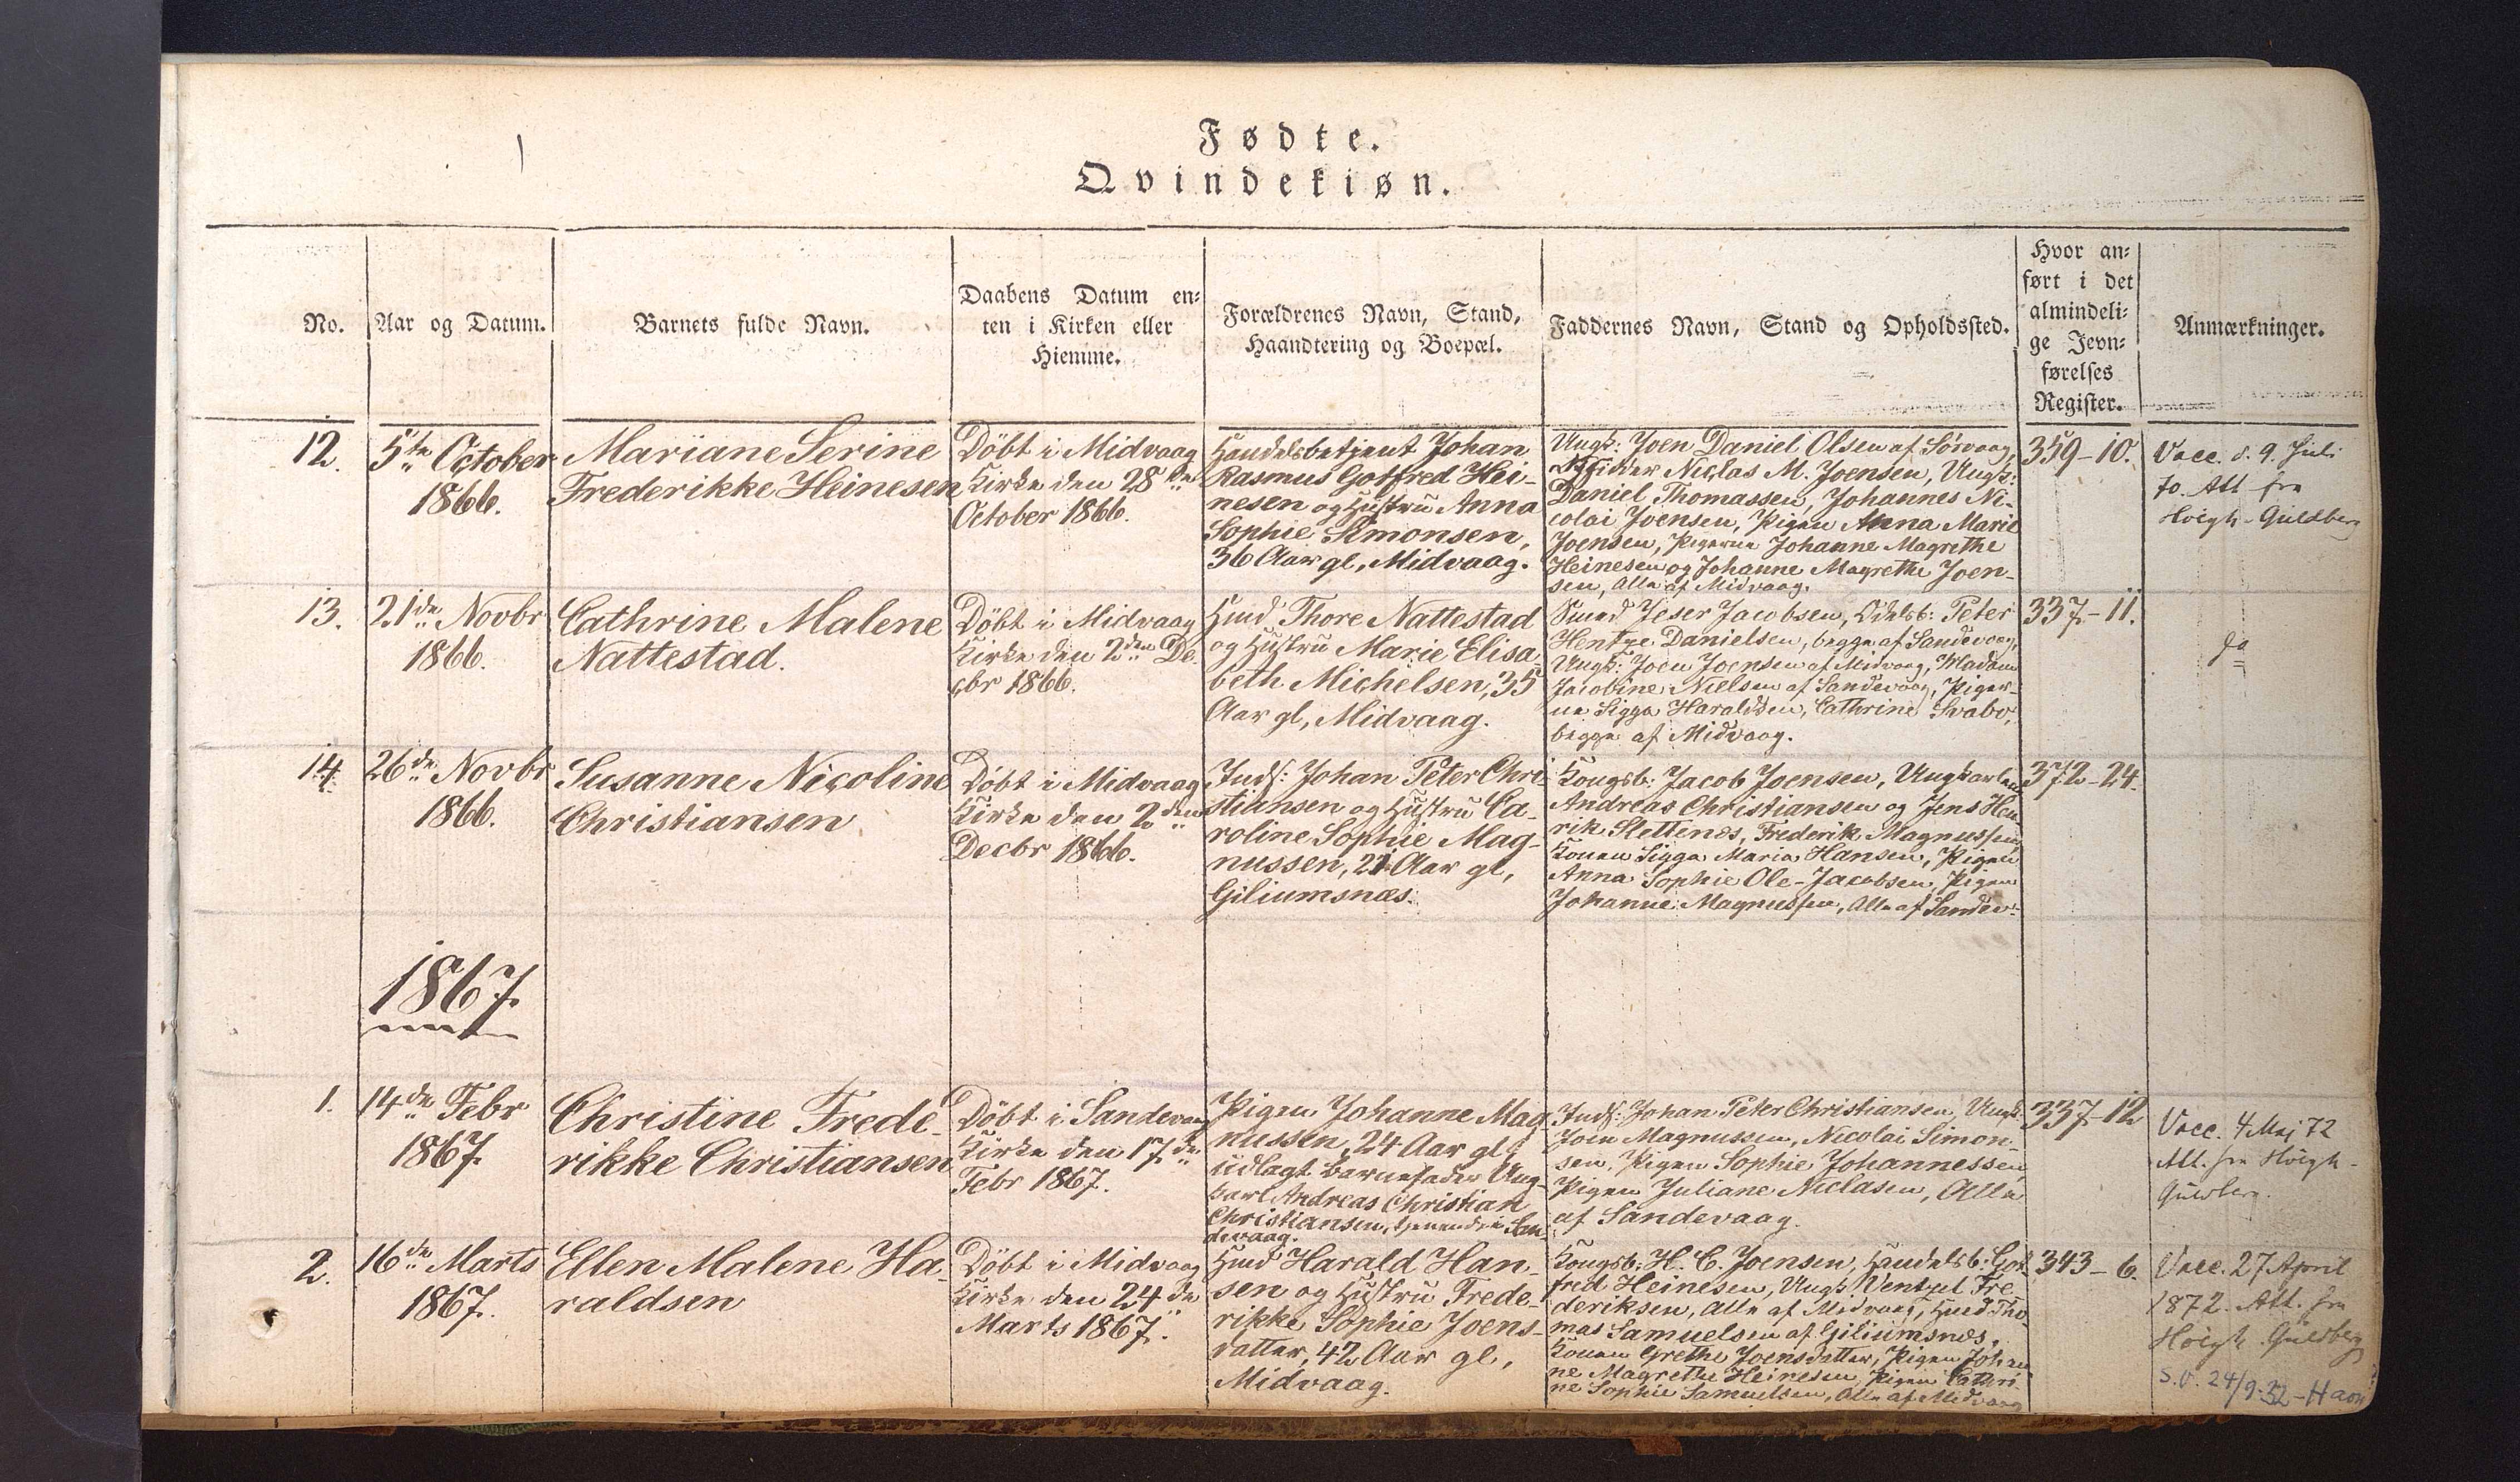 Fødte.
Qvindekiøn.
No.
Aar og Datum.
Barnets fulde Navn.
Daabens Datum en-
ten i Kirken eller
Hiemme.
Forældrenes Navn, Stand,
Haandtering og Boepæl.
Faddernes Navn, Stand og Opholdssted.
Hvor an-
ført i det
almindeli-
ge Jevn-
førelses
Register.
Anmærkninger.
12.
5te October
1866.
Mariane Serine
Frederikke Heinesen
Döbt i Midvaag
Kirke den 28de
October 1866.
Handelsbetjent Johan
Rasmus Gotfred Hei-
nesen og Hustru Anna
Sophie Simonsen,
36 Aar gl, Midvaag.
Ungk: Joen Daniel Olsen af Sörvaag,
Niclas M. Joensen, Ungk:
Daniel Thomassen, Johannes Ni-
colai Joensen, Pigen Anna Marie
Joensen, Pigerne Johanne Magrethe
Heinesen og Johanne Magrethe Joen-
sen, Alle af Midvaag.
359-10.
Vacc. d. 9. Juli
70. Att fra
Höegh-Guldberg
13.
21de Novbr
1866.
Cathrine Malene
Nattestad.
Döbt i Midvaag
Kirke den 2den De-
cbr 1866.
Huusmd Thore Nattestad
og Hustru Marie Elisa-
beth Michelsen, 35
Aar gl, Midvaag.
Smed Jeser Jacobsen, Odelsb: Peter
Hentze Danielsen, begge af Sandevaag,
Ungk: Joen Joensen af Midvaag, Madam
Jacobine Nielsen af Sandevaag, Piger-
ne Sigga Haraldsen, Cathrine Svabo,
begge af Midvaag.
337-11.
14.
26de Novbr
1866.
Susanne Nicoline
Christiansen
Döbt i Midvaag
Kirke den 2den
Decbr 1866.
Inds: Johan Peter Chri-
stiansen og Hustru Ca-
roline Sophie Mag-
nussen, 21 Aar gl,
Giliumsnæs.
Kongsb: Jacob Joensen, Ungkarlene
Andreas Christiansen og Jens Hen-
rik Slettenæs, Frederik Magnussen,
Konen Sigga Maria Hansen, Pigen
Anna Sophie Ole-Jacobsen, Pigen
Johanne Magnussen, Alle af Sandev:
372-24.
1867.
1.
14de Febr
1867.
Christine Frede-
rikke Christiansen
Döbt i Sandevaag
Kirke den 17de
Febr 1867.
Pigen Johanne Mag-
nussen, 24 Aar gl,
udlagt Barnefader Ung-
karl Andreas Christian
Christiansen, tjenende i San-
devaag.
Inds: Johan Peter Christiansen, Ungk.
Joen Magnussen, Nicolai Simon-
sen, Pigen Sophie Johannessen,
Pigen Juliane Niclasen, Alle
af Sandevaag.
337-12
Vacc. 4 Maj 72
Att. fra Höegh-
Guldberg.
2.
16de Marts
1867.
Ellen Malene Ha-
raldsen
Döbt i Midvaag
Kirke den 24de
Marts 1867.
Huusmd Harald Han-
sen og Hustru Frede-
rikke Sophie Joens-
datter, 42 Aar gl,
Midvaag.
Kongsb. H. C. Joensen, Handelsb: Got-
fred Heinesen, Ungk: Ventzel Fre-
deriksen, Alle af Midvaag, Huusmd Tho-
mas Samuelsen af Giliumsnæs.
Konen Grethe Joensdatter, Pigen Johan-
ne Magrethe Heinesen, Pigen Cathri-
ne Sophie Samuelsen, Alle af Midvaag
343-6.
Vacc. 27 April
1872. Att. fra
Höegh Guldberg
S.V. 24/9-32-